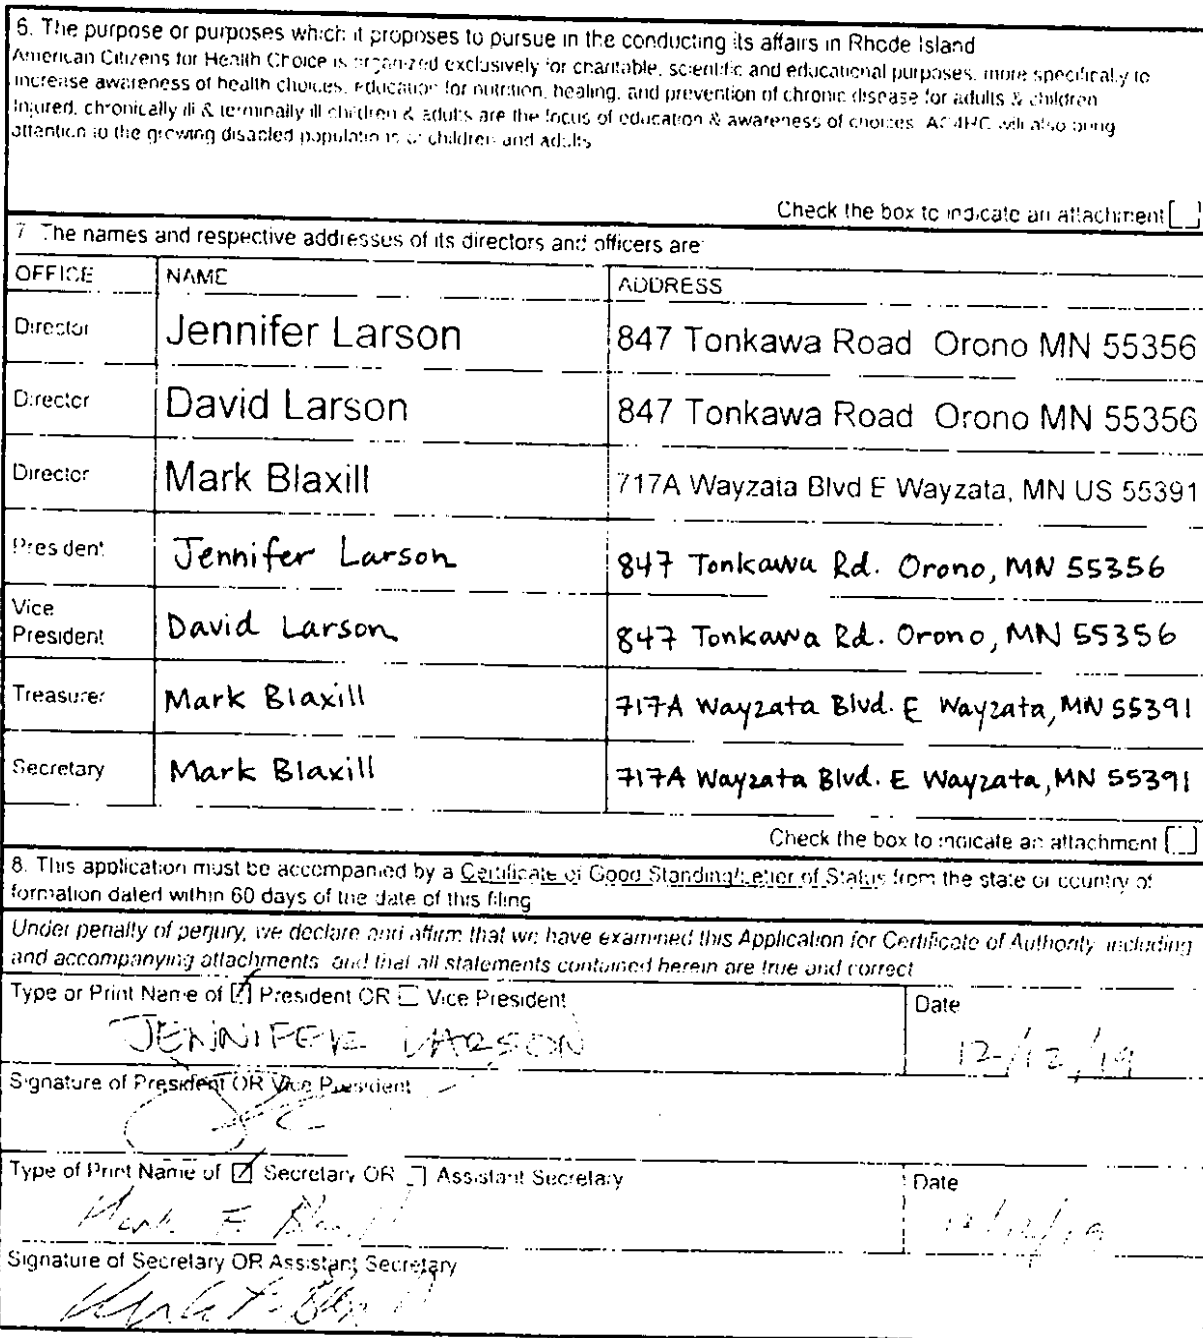 6. The purpose or purposes which it proposes to pursue in the conducting its affairs in Rhode Island
American Citizens for Health Choice is organized exclusively for charitable, scientific and educational purposes, more specifically to
increase awareness of health choices, education for nutrition, healing, and prevention of chronic disease for adults & children
Injured, chronically ill & terminally ill children & adults are the focus of education & awareness of choices AC4HC will also bring
attention to the growing disabled populations of children and adults
Check the box to indicate an attachment
7 The names and respective addresses of its directors and officers are:
OFFICE NAME ADDRESS
Director Jennifer Larson 847 Tonkawa Road Orono MN 55356
Director David Larson 847 Tonkawa Road Orono MN 55356
Director Mark Blaxill 717A Wayzata Blvd E Wayzata, MN US 55391
President Jennifer Larson 847 Tonkawa Rd. Orono, MN 55356
Vice President David Larson 847 Tonkawa Rd. Orono, MN 55356
Treasurer Mark Blaxill 717A Wayzata Blvd. E Wayzata, MN 55391
Secretary Mark Blaxill 717A Wayzata Blvd. E Wayzata, MN 55391
Check the box to indicate an attachment
8. This application must be accompanied by a Certificate of Good Standing/Letter of Status from the state or country of
formation dated within 60 days of the date of this filing
Under penalty of perjury, we declare and affirm that we have examined this Application for Certificate of Authority, including
and accompanying attachments, and that all statements contained herein are true and correct
Type or Print Name of President OR Vice President Date
JENNIFER LARSON 12/12/19
Signature of President OR Vice President
Type of Print Name of Secretary OR Assistant Secretary Date
Mark F. 12/12/19
Signature of Secretary OR Assistant Secretary